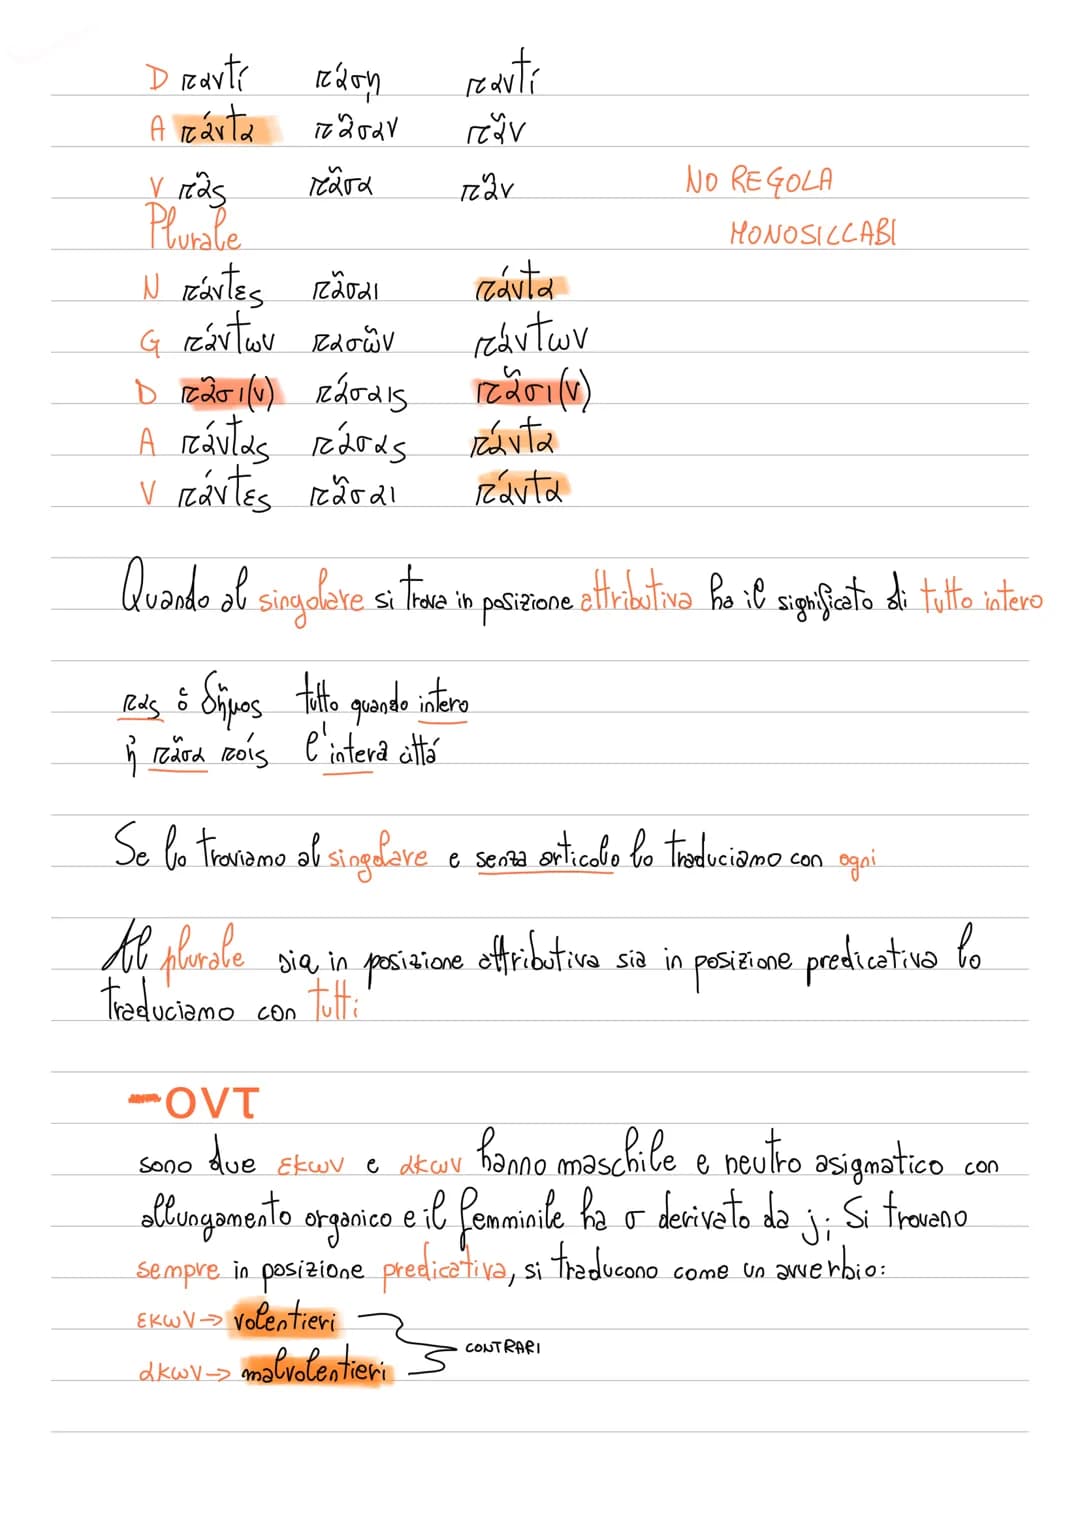 D παντί πάση παντί
A πάντα πᾶσαν πᾶν
V πᾶς πᾶσα πᾶν NO REGOLA
Plurale MONOSILLABI
N πάντες πᾶσαι πάντα
G πάντων πασῶν πάντων
D πᾶσι(ν) πάσαις πᾶσι(ν)
A πάντας πάσας πάντα
V πάντες πᾶσαι πάντα
Quando al singolare si trova in posizione attributiva ha il significato di tutto intero
πας ὁ δῆμος tutto quando intero
ἡ πᾶσα ποίς l'intera cittá
Se lo troviamo al singolare e senza articolo lo traduciamo con ogni
Al plurale sia in posizione attributiva sia in posizione predicativa lo
traduciamo con tutti
-OVT
sono due εκων e ακων hanno maschile e neutro asigmatico con
allungamento organico e il femminile ha σ derivato da j; Si trovano
sempre in posizione predicativa, si traducono come un avverbio:
εκων→ volentieri
CONTRARI
ακων→ malvolentieri